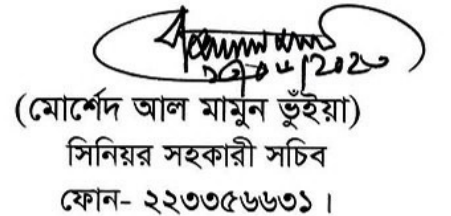 (মোর্শেদ আল মামুন ভূঁইয়া)
সিনিয়র সহকারী সচিব
ফোন- ২২৩৩৫৬৬৩১ ।